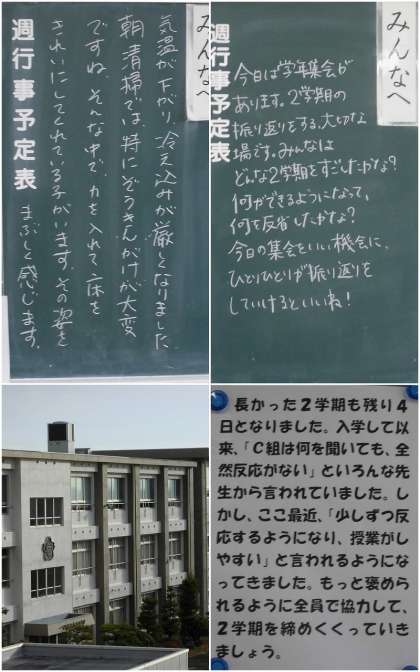 みんなへ
気温が下がり、冷え込みが厳しくなりました。
朝清掃では、特にぞうきんがけが大変
ですね。そんな中で、力を入れて床を
きれいにしてくれている子がいます。その姿を
まぶしく感じます。
週行事予定表
みんなへ
週行事予定表
今日は学年集会が
あります。2学期の
振り返りをする、大切な
場です。みんなは
どんな2学期をすごしたかな?
何ができるようになって、
何を反省したかな?
今日の集会をいい機会に、
ひとりひとりが振り返りを
していけるといいね!
長かった2学期も残り4
日となりました。入学して以
来、「C組は何を聞いても、全
然反応がない」といろんな先
生から言われていました。し
かし、ここ最近、「少しずつ反
応するようになり、授業がし
やすい」と言われるようにな
ってきました。もっと褒めら
れるように全員で協力して、
2学期を締めくくっていき
ましょう。